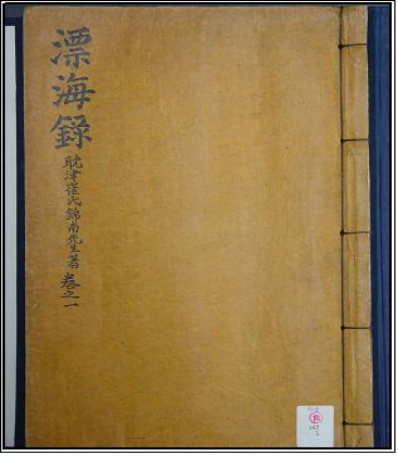 漂海錄
耽津崔氏錦南先生著 卷之一